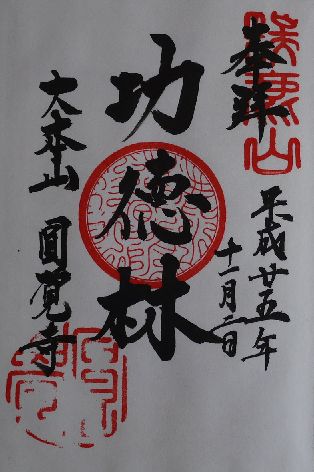 奉拝
平成廿五年
十一月二日
功徳林
大本山
圓覚寺